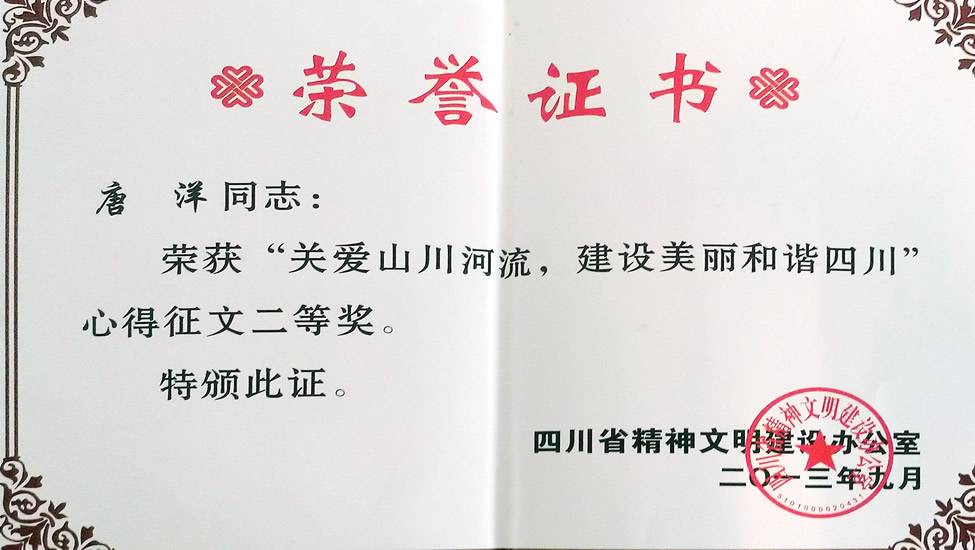 荣誉证书
唐 洋同志：
荣获“关爱山川河流，建设美丽和谐四川”
心得征文二等奖。
特颁此证。
四川省精神文明建设办公室
二〇一三年九月
四川省精神文明建设办公室
5101000020431